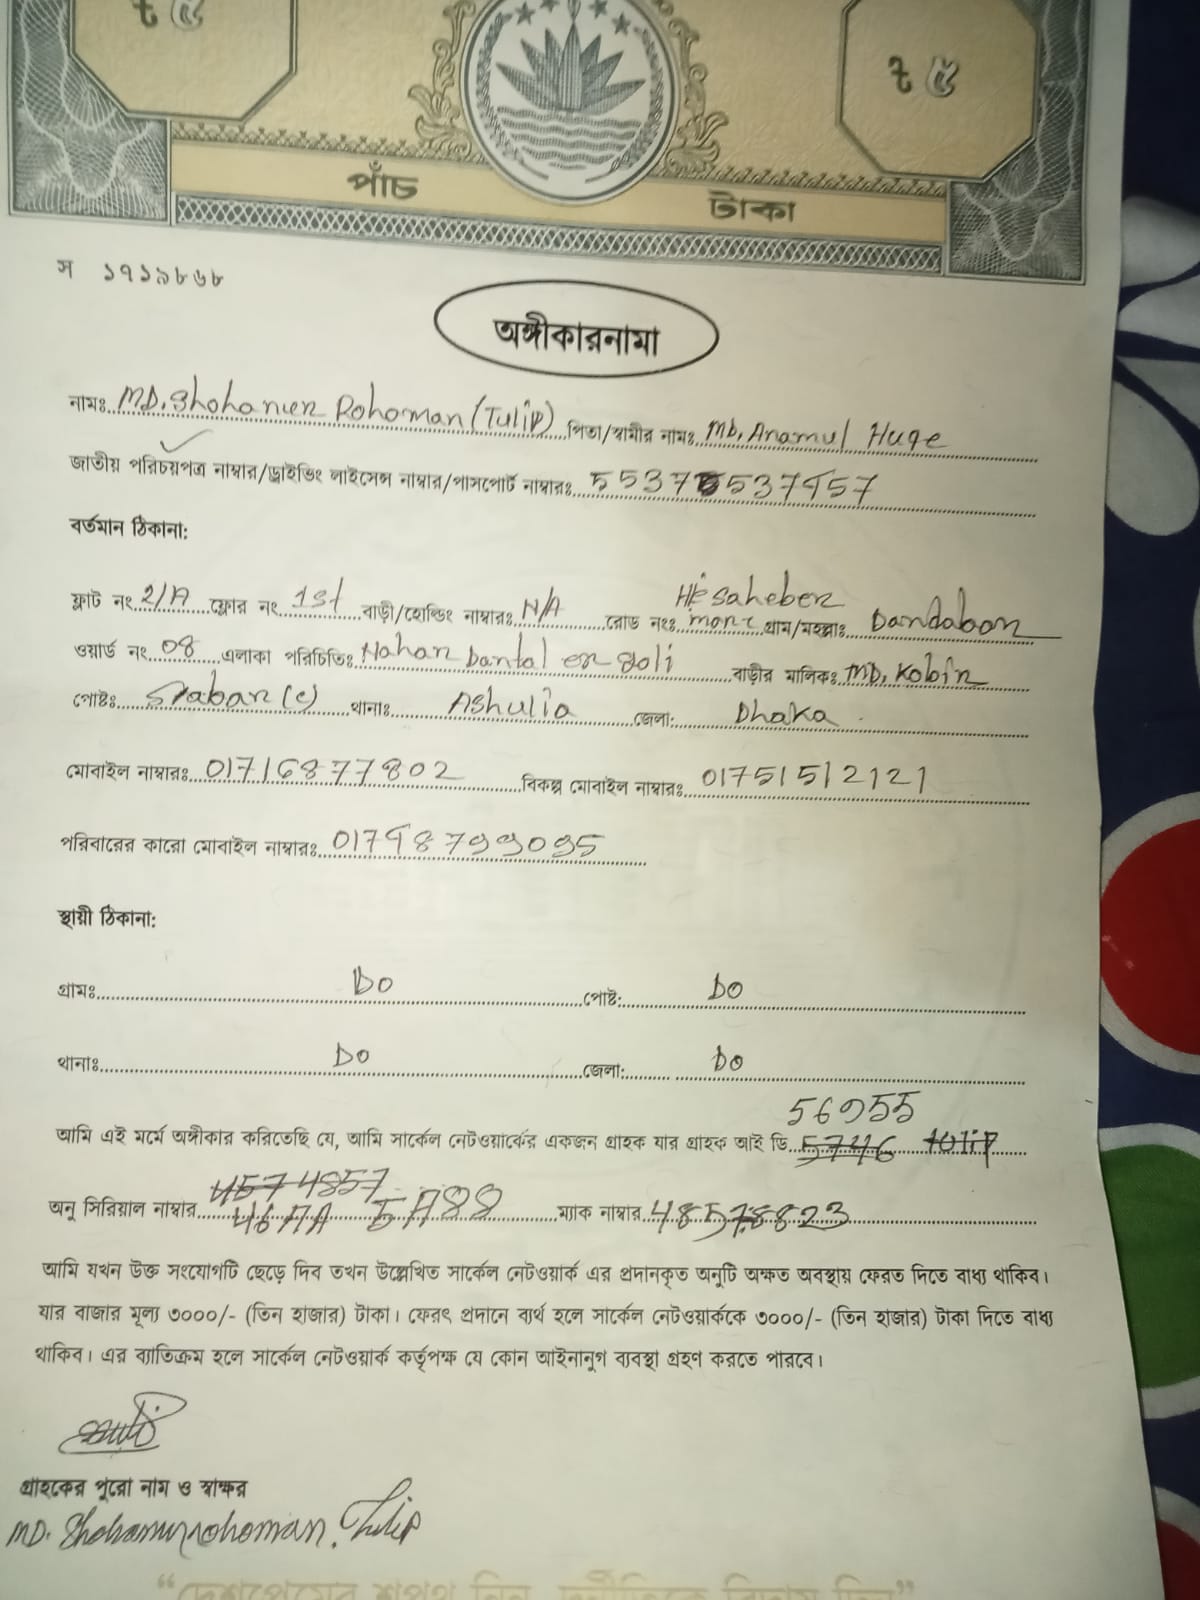 ৳ ৫
৳ ৫
পাঁচ টাকা
স ১৭১৯৮৬৮
অঙ্গীকারনামা
নামঃ MD. Shohanur Rohoman (Tulip) পিতা/স্বামীর নামঃ MD. Anamul Huqe
জাতীয় পরিচয়পত্র নাম্বার/ড্রাইভিং লাইসেন্স নাম্বার/পাসপোর্ট নাম্বারঃ
বর্তমান ঠিকানা:
ফ্লাট নং 2/A ফ্লোর নং 1st বাড়ী/হোল্ডিং নাম্বারঃ N/A রোড নংঃ saheber গ্রাম/মহল্লাঃ Dandabor
ওয়ার্ড নং 08 এলাকা পরিচিতিঃ Nahar Dantal er goli বাড়ীর মালিকঃ MD, Kobir
পোষ্টঃ (c) থানাঃ Ashulia জেলা: Dhaka
মোবাইল নাম্বারঃ 01716877802 বিকল্প মোবাইল নাম্বারঃ 01751512121
পরিবারের কারো মোবাইল নাম্বারঃ
স্থায়ী ঠিকানা:
গ্রামঃ DO পোষ্ট: DO
থানাঃ DO জেলা: DO
আমি এই মর্মে অঙ্গীকার করিতেছি যে, আমি সার্কেল নেটওয়ার্কের একজন গ্রাহক যার গ্রাহক আই ডি
অনু সিরিয়াল নাম্বার ম্যাক নাম্বার
আমি যখন উক্ত সংযোগটি ছেড়ে দিব তখন উল্লেখিত সার্কেল নেটওয়ার্ক এর প্রদানকৃত অনুটি অক্ষত অবস্থায় ফেরত দিতে বাধ্য থাকিব।
যার বাজার মূল্য ৩০০০/- (তিন হাজার) টাকা। ফেরৎ প্রদানে ব্যর্থ হলে সার্কেল নেটওয়ার্ককে ৩০০০/- (তিন হাজার) টাকা দিতে বাধ্য
থাকিব। এর ব্যাতিক্রম হলে সার্কেল নেটওয়ার্ক কর্তৃপক্ষ যে কোন আইনানুগ ব্যবস্থা গ্রহণ করতে পারবে।
গ্রাহকের পুরো নাম ও স্বাক্ষর
MD. Shohanur rohoman. Tulip
“দেশপ্রেমের শপথ নিন, দুর্নীতিকে বিদায় দিন”